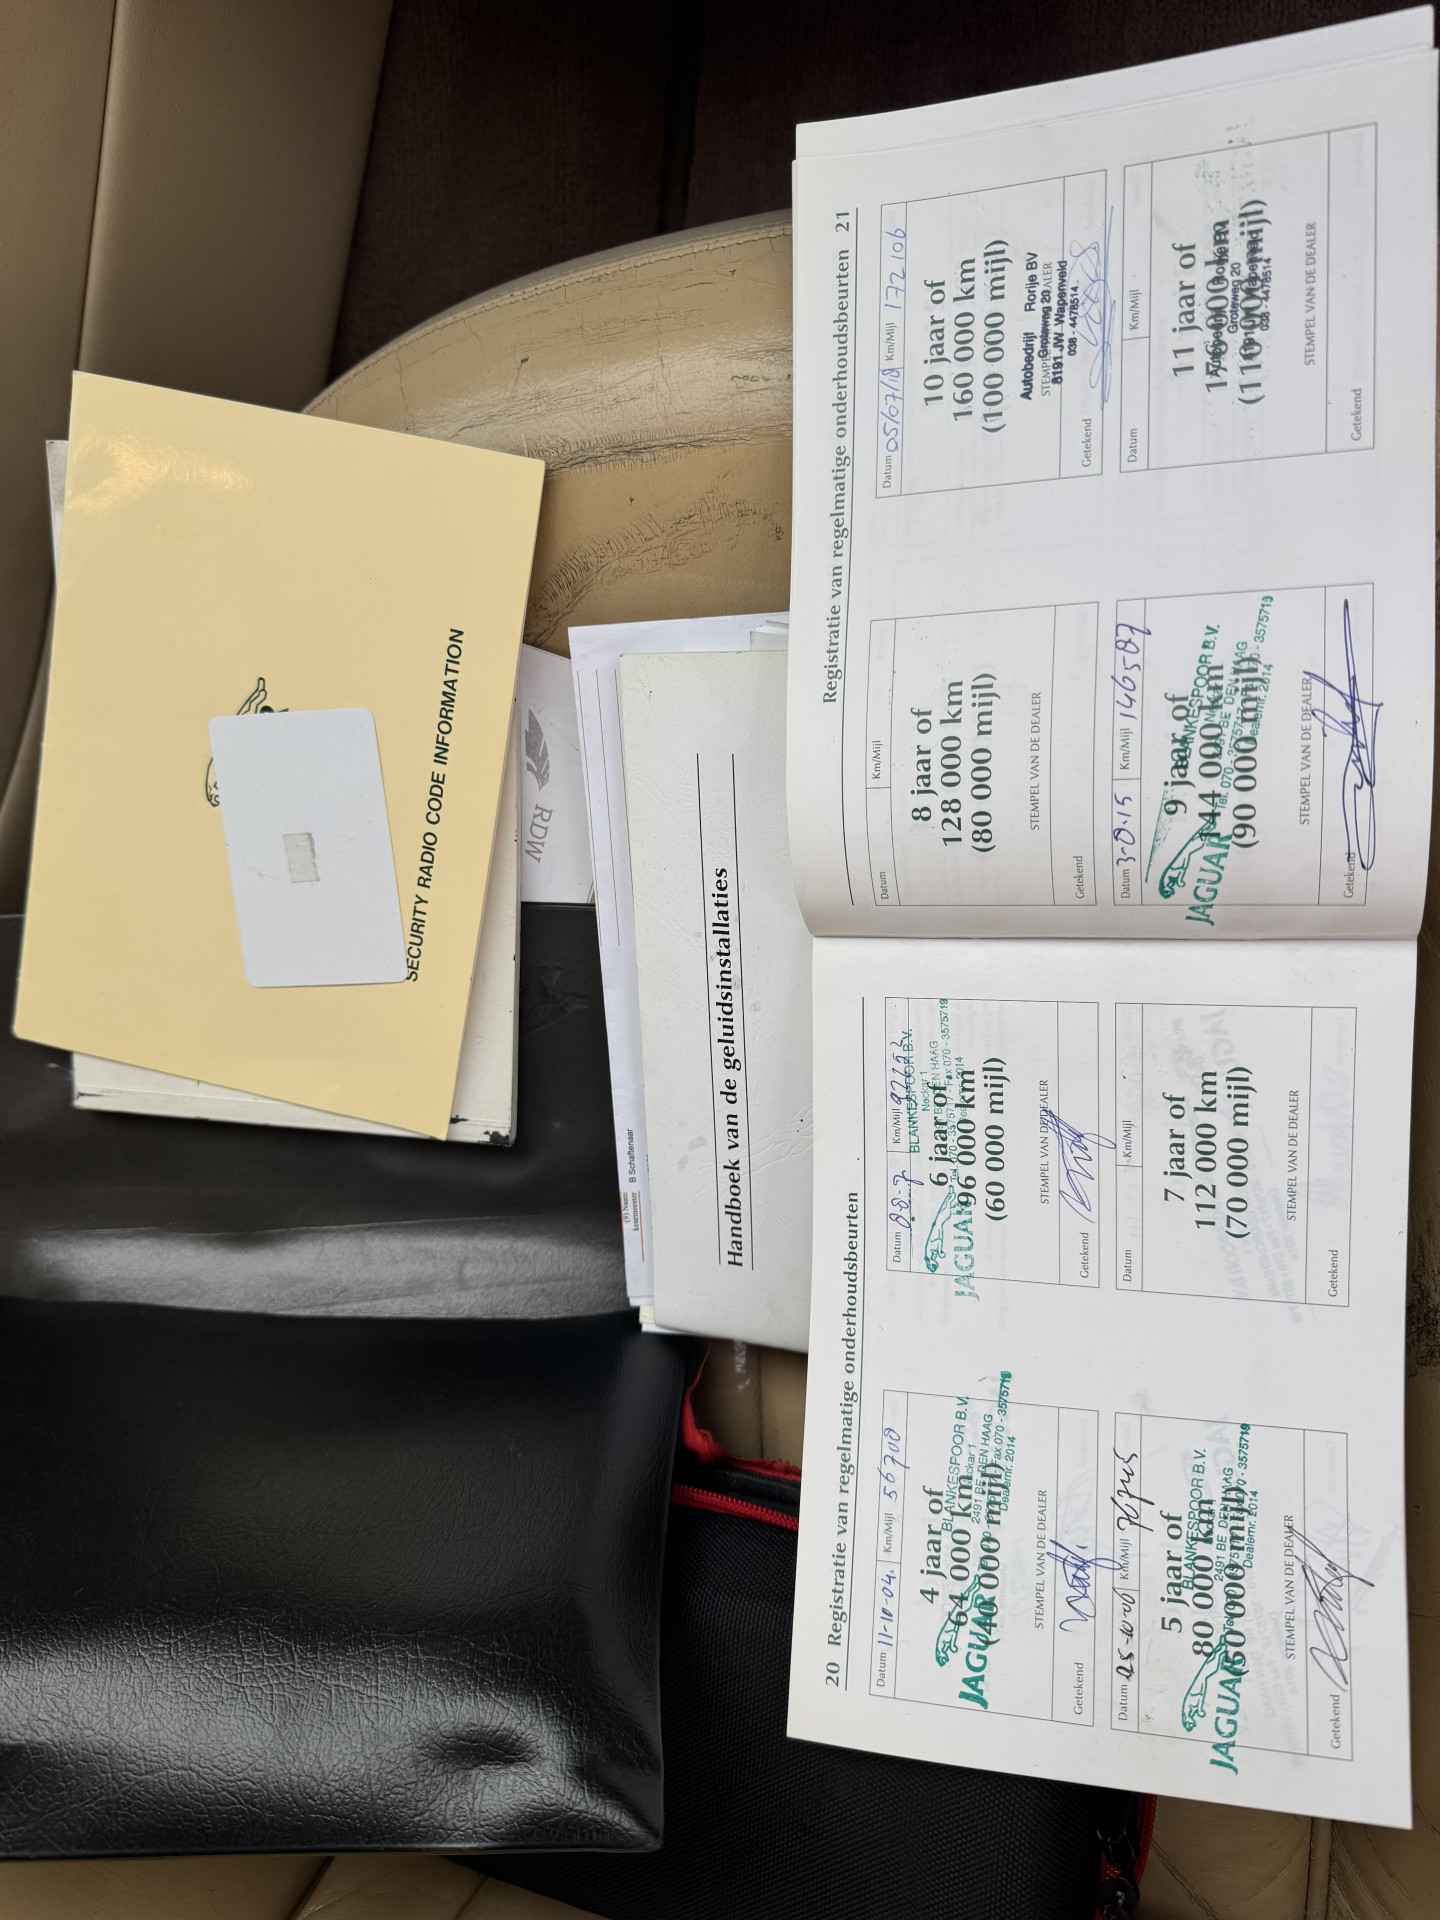 SECURITY RADIO CODE INFORMATION
RDW
B Schaftenaar
Handboek van de geluidsinstallaties
20 Registratie van regelmatige onderhoudsbeurten
Datum 11-10-04. Km/Mijl 56700
4 jaar of
64 000 km
(40 000 mijl)
JAGUAR
BLANKESPOOR B.V.
Neckar 1
2491 BE DEN HAAG
Fax 070 - 3575719
Dealernr. 2014
STEMPEL VAN DE DEALER
Getekend
Datum 25-10-06 Km/Mijl
5 jaar of
80 000 km
(50 000 mijl)
JAGUAR
BLANKESPOOR B.V.
2491 BE DEN HAAG
Dealernr. 2014
STEMPEL VAN DE DEALER
Getekend
Datum Km/Mijl
6 jaar of
96 000 km
(60 000 mijl)
JAGUAR
BLANKESPOOR B.V.
Neckar 1
2491 BE DEN HAAG
Fax 070 - 3575719
STEMPEL VAN DE DEALER
Getekend
Datum Km/Mijl
7 jaar of
112 000 km
(70 000 mijl)
STEMPEL VAN DE DEALER
Getekend
Registratie van regelmatige onderhoudsbeurten 21
Datum Km/Mijl
8 jaar of
128 000 km
(80 000 mijl)
STEMPEL VAN DE DEALER
Getekend
Datum Km/Mijl 146587
9 jaar of
144 000 km
(90 000 mijl)
JAGUAR
BLANKESPOOR B.V.
2491 BE DEN HAAG
Dealernr. 2014
STEMPEL VAN DE DEALER
Getekend
Datum 05/07/18 Km/Mijl 172106
10 jaar of
160 000 km
(100 000 mijl)
Autobedrijf Rorije BV
Groteweg 20
8191 JW Wapenveld
038 - 4478514
STEMPEL VAN DE DEALER
Getekend
Datum Km/Mijl
11 jaar of
176 000 km
(110 000 mijl)
Groteweg 20
038 - 4478514
STEMPEL VAN DE DEALER
Getekend